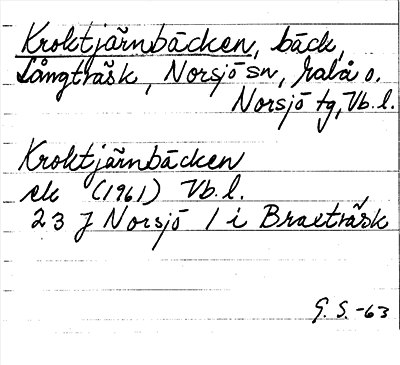 Kroktjärnbäcken, bäck,
Långträsk, Norsjö sn, Malå o.
Norsjö tg, Vb. l.
Kroktjärnbäcken
ek (1961) Vb. l.
23 J Norsjö 1 i Braxträsk
G. S. -63